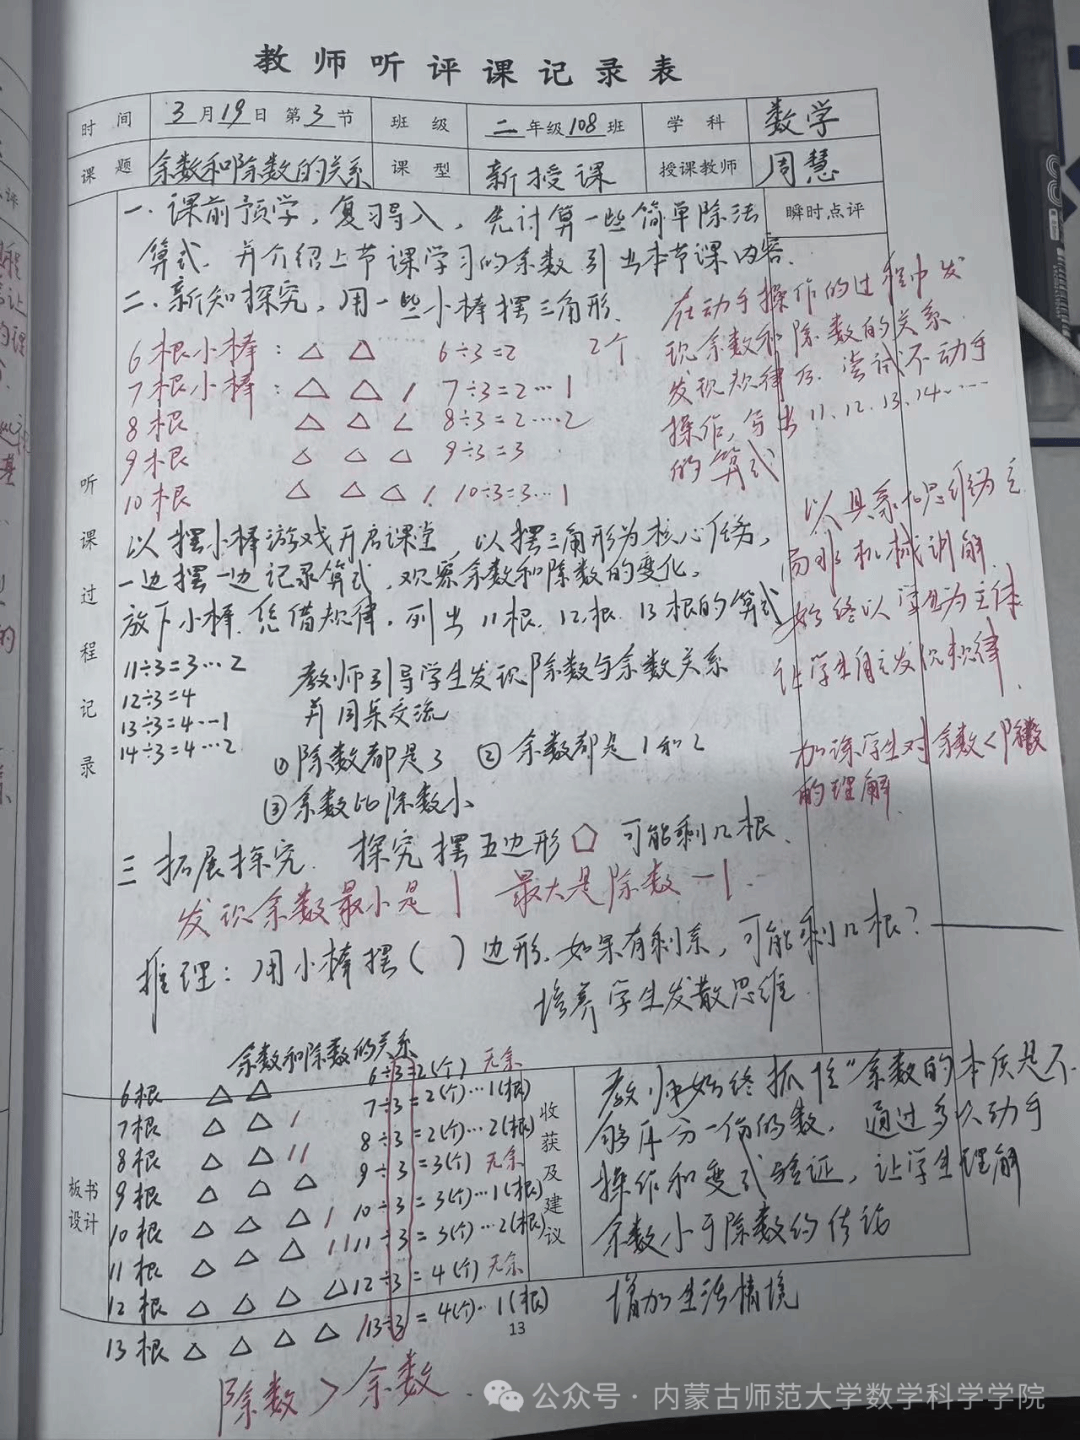 教师听评课记录表
时间 3月19日 第3节 班级 二年级108班 学科 数学
课题 余数和除数的关系 课型 新授课 授课教师 周慧
瞬时点评
听课过程记录
一.课前预学,复习导入,先计算一些简单除法
算式.并介绍上节课学习的余数引出本节课内容.
二.新知探究,用一些小棒摆三角形.
6根小棒:△ △ 6÷3=2 2个
7根小棒:△ △ / 7÷3=2…1
8根 △ △ ∠ 8÷3=2…2
9根 △ △ △ 9÷3=3
10根 △ △ △ / 10÷3=3…1
在动手操作的过程中发
现余数和除数的关系.
发现规律后.尝试不动手
操作,写出11.12.13.14……
的算式
以摆小棒游戏开启课堂,以摆三角形为核心任务,
一边摆一边记录算式,观察余数和除数的变化.
放下小棒.凭借规律.列出11根.12根.13根的算式
11÷3=3…2
12÷3=4
13÷3=4…1
14÷3=4…2
教师引导学生发现除数与余数关系
并同桌交流
①除数都是3 ②余数都是1和2
③余数比除数小
以具象和思维为主
而非机械训解.
始终以学生为主体
让学生自主发现规律.
加深学生对余数<除数
的理解.
三拓展探究.探究摆五边形⬠可能剩几根.
发现余数最小是1 最大是除数-1.
推理:用小棒摆( )边形.如果有剩余,可能剩几根?
培养学生发散思维.
板书设计
余数和除数的关系
6根 △ △ 6÷3=2(个) 无余
7根 △ △ / 7÷3=2(个)…1(根)
8根 △ △ // 8÷3=2(个)…2(根)
9根 △ △ △ 9÷3=3(个) 无余
10根 △ △ △ / 10÷3=3(个)…1(根)
11根 △ △ △ // 11÷3=3(个)…2(根)
12根 △ △ △ △ 12÷3=4(个) 无余
13根 △ △ △ △ / 13÷3=4(个)…1(根)
除数>余数.
收获及建议
教师始终抓住"余数的本质是不
够再分一份的数,通过多次动手
操作和算式验证,让学生理解
余数小于除数的结论
增加生活情境
13
公众号·内蒙古师范大学数学科学学院